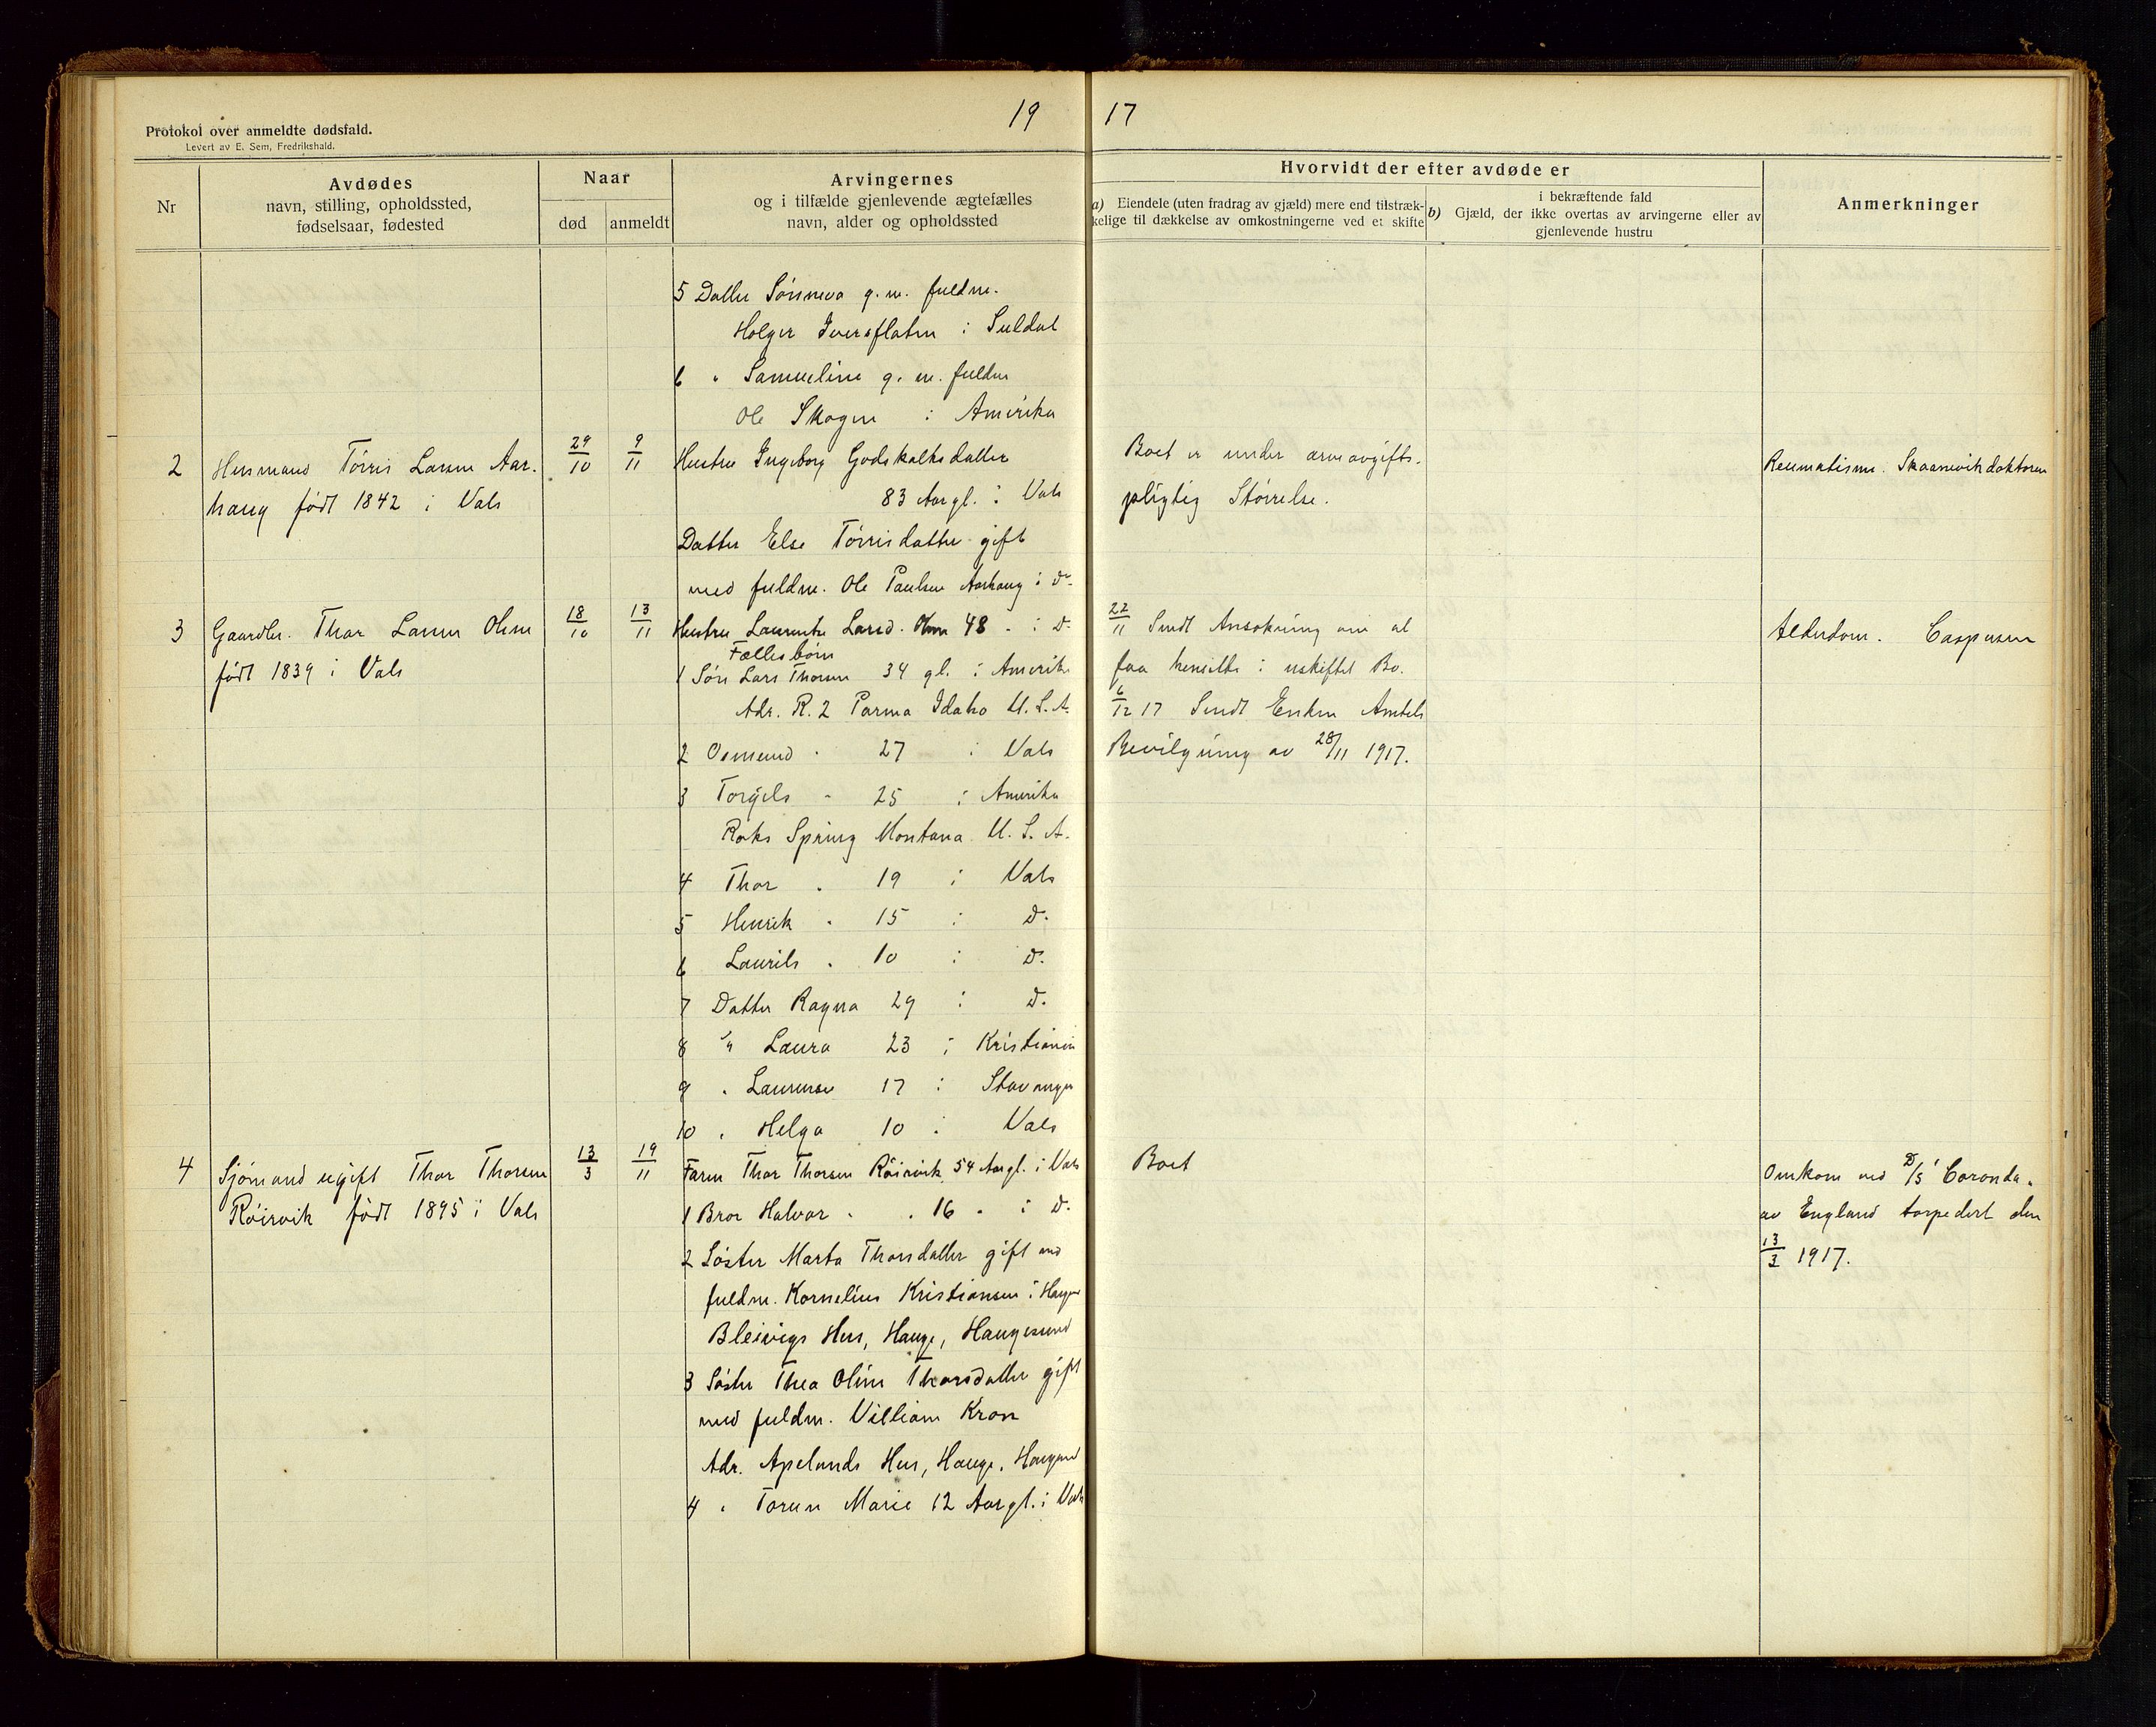 19 17
Protokol over anmeldte dødsfald.
Levert av E. Sem, Fredrikshald.
Nr
Avdødes
navn, stilling, opholdssted,
fødselsaar, fødested
Naar
død
anmeldt
Arvingernes
og i tilfælde gjenlevende ægtefælles
navn, alder og opholdssted
Hvorvidt der efter avdøde er
a) Eiendele (uten fradrag av gjæld) mere end tilstræk-
kelige til dækkelse av omkostningerne ved et skifte
i bekræftende fald
b) Gjæld, der ikke overtas av arvingerne eller av
gjenlevende hustru
Anmerkninger
5 Datter Sönneva g. m. fuldm.
Holger Iversflaten i Suldal
6 " Samueline g. m. fuldm
Ole Skogen i Amerika
2 Husmand Törris Larsen Aar-
haug født 1842 i Vats
29/10 9/11
Hustru Ingeborg Godskalksdatter
83 Aar gl. i Vats
Datter Else Törrisdatter gift
med fuldm. Ole Paulsen Aarhaug i d.
Boet er under arveavgifts-
pligtig Störrelse.
Reumatisme. Skaanevikdoktoren
3 Gaardbr. Thor Larsen Olsen
født 1839 i Vats
18/10 13/11
Hustru Laurentse Larsd. 48 - i d.
Fællesbörn
1 Sön Lars Thorsen 34 gl. i Amerika
Adr. R. 2 Parma Idaho U.S.A.
2 Osmund " 27 i Vats
3 Torgils " 25 i Amerika
Roks Spring Montana U. S. A.
4 Thor " 19 i Vats
5 Henrik " 15 i d.
6 Laurits " 10 i d.
7 Datter Ragna 29 i d.
8 " Laura 23 i Kristiania
9 " Laurense 17 i Stavanger
10 " Helga 10 i Vats
22/11 Sendt Ansökning om at
faa hensitte i uskiftet Bo.
6/12 17 Sendt Enken Amtets
Bevilgning av 28/11 1917.
Alderdom. Caspersen
4 Sjömand ugift Thor Thorsen
Röisvik født 1895 i Vats
13/3 19/11
Faren Thor Thorsen Röisvik 54 Aar gl. i Vats
1 Bror Halvor " " 16 " i d.
2 Söster Marta Thorsdatter gift med
fuldm. Kornelius Kristiansen i
Bleivigs Hus, Hauge, Haugesund
3 Söster Thea Oline Thorsdatter gift
med fuldm. Villiam Kron
Adr. Apelands Hus, Hauge, Haugesund
4 " Torun Marie 12 Aar gl. i Vats
Boet
Omkom med D/S Coronda
av England torpedert den
13/3 1917.